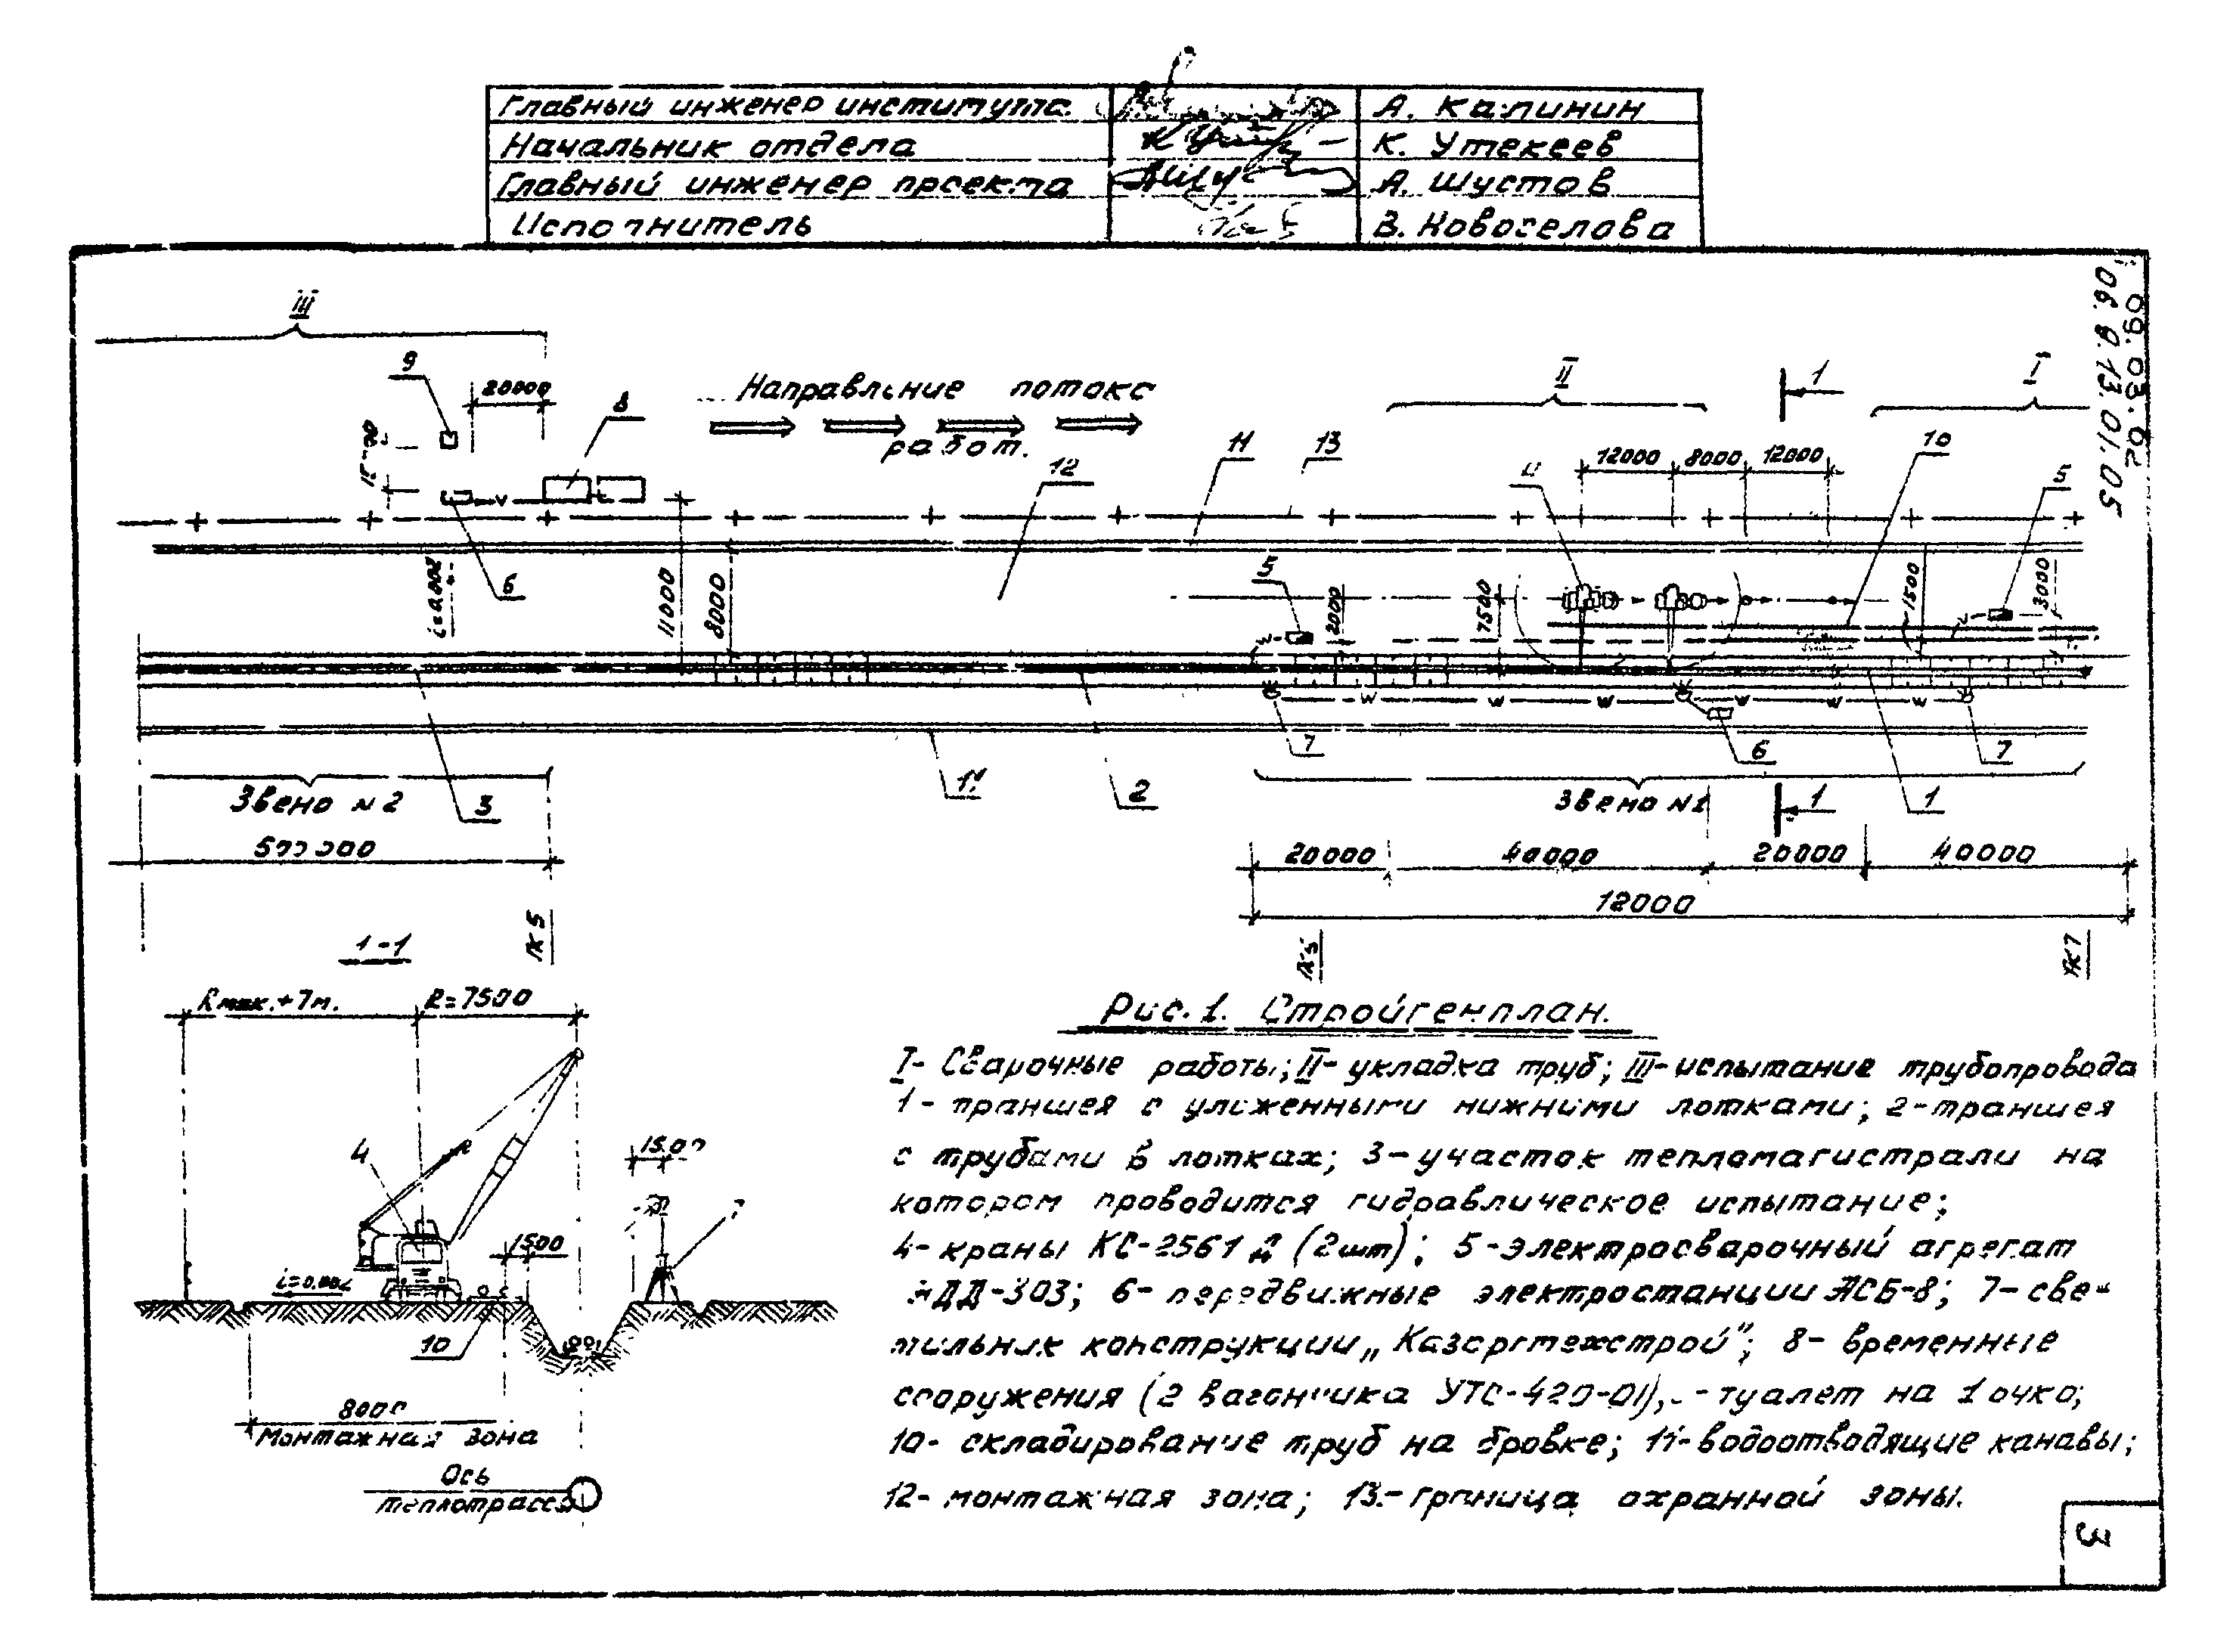 Главный инженер института А. Калинин
Начальник отдела К. Утекеев
Главный инженер проекта А. Шустов
Исполнитель В. Новоселова
09.03.02
06.9.13.01.05
III
9
20000
8
Направление потока
работ.
II
1
I
11
13
12
12000
8000
12000
10
5
6
i=0.002
11000
8000
5
2000
7500
1500
3000
7
6
7
Звено №2
3
11
2
Звено №1
1
1
500000
20000
40000
20000
40000
12000
ПК5
ПК7
1-1
Rмак.+7м.
R=7500
Рис.1. Стройгенплан.
I- Сварочные работы; II- укладка труб; III-испытание трубопровода
1- траншея с уложенными нижними лотками; 2-траншея
с трубами в лотках; 3-участок тепломагистрали на
котором проводится гидравлическое испытание;
4- краны КС-2561 Д (2шт); 5-электросварочный агрегат
АДД-303; 6- передвижные электростанции АСБ-8; 7- све-
тильник конструкции „Казоргтехстрой"; 8- временные
сооружения (2 вагончика УТС-420-01), - туалет на 1 очко;
10- складирование труб на бровке; 11-водоотводящие канавы;
12- монтажная зона; 13.- граница охранной зоны.
4
1500
1500
i=0.002
10
8000
Монтажная зона
Ось
теплотрассы
3